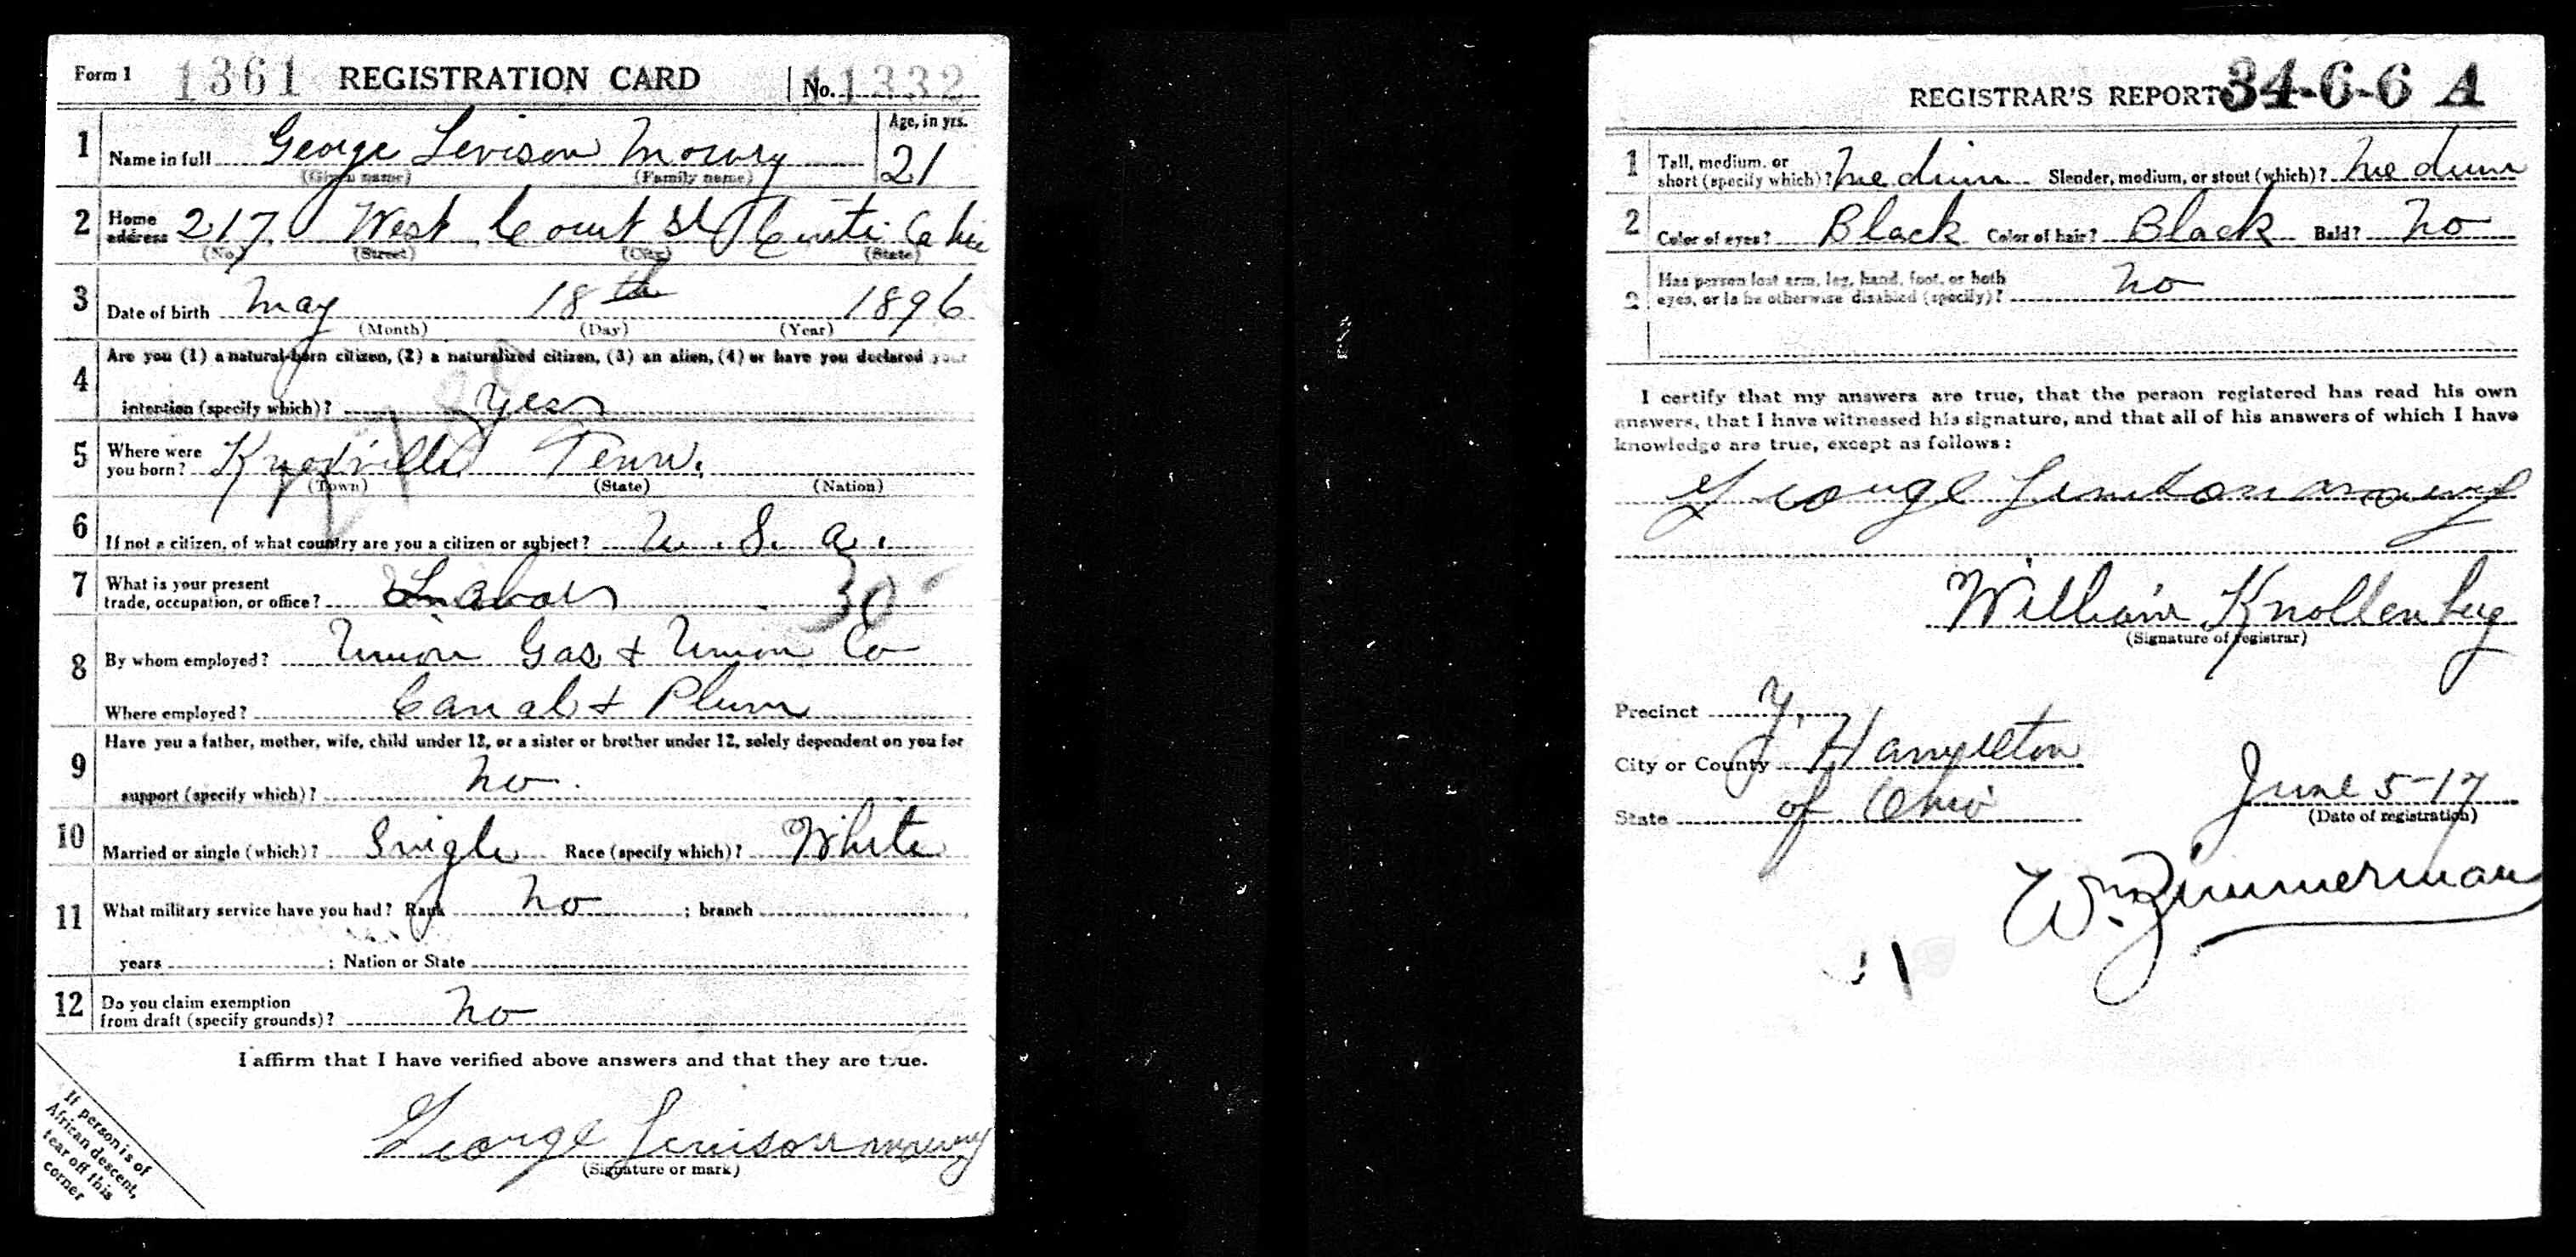 Form 1 1361 REGISTRATION CARD No. 11332
1 Name in full George Levison Mowry Age, in yrs. 21
(Given name) (Family name)
2 Home address 217 West Court St Cinti Ohio
(No.) (Street) (City) (State)
3 Date of birth May 18th 1896
(Month) (Day) (Year)
Are you (1) a natural-born citizen, (2) a naturalized citizen, (3) an alien, (4) or have you declared your
4 intention (specify which)? yes
5 Where were you born? Knoxville Tenn.
(Town) (State) (Nation)
6 If not a citizen, of what country are you a citizen or subject? U. S. a.
7 What is your present trade, occupation, or office? Labor 30
8 By whom employed? Union Gas & Union Co
Where employed? Canal & Plum
Have you a father, mother, wife, child under 12, or a sister or brother under 12, solely dependent on you for
9 support (specify which)? no.
10 Married or single (which)? Single Race (specify which)? White
11 What military service have you had? Rank no ; branch
years ; Nation or State
12 Do you claim exemption from draft (specify grounds)? no
I affirm that I have verified above answers and that they are true.
George Levison Mowry
(Signature or mark)
If person is of
African descent,
tear off this
corner
REGISTRAR'S REPORT 34-6-6 A
1 Tall, medium, or short (specify which)? Medium Slender, medium, or stout (which)? Medium
2 Color of eyes? Black Color of hair? Black Bald? no
Has person lost arm, leg, hand, foot, or both
eyes, or is he otherwise disabled (specify)? no
I certify that my answers are true, that the person registered has read his own
answers, that I have witnessed his signature, and that all of his answers of which I have
knowledge are true, except as follows:
George Levison Mowry
William Knollenberg
(Signature of registrar)
Precinct Y,
City or County Hamilton
State of Ohio June 5-17
(Date of registration)
Wm Zimmerman